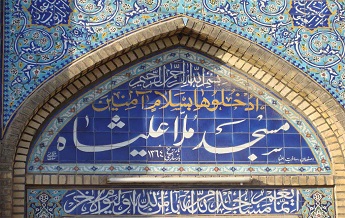 بسم الله الرحمن الرحیم
ادخلوها بسلام آمنین
مسجد ملا علیشاه
۱۳۶۴
إنما یعمر مساجد الله من آمن بالله والیوم الآخر